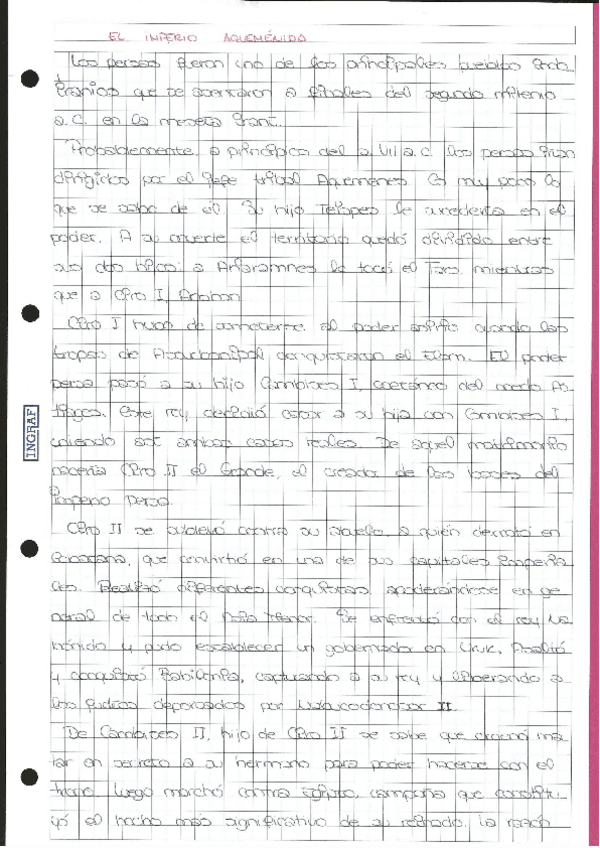 EL IMPERIO AQUEMÉNIDA
Los persas fueron uno de los principales pueblos indo
iranios que se asentaron a finales del segundo milenio
a.C. en la meseta iraní.
Probablemente, a principios del s. VII a.C. los persas eran
dirigidos por el jefe tribal Aquemenes. Es muy poco lo
que se sabe de él. Su hijo Teispes le sucedería en el
poder. A su muerte el territorio quedó dividido entre
sus dos hijos: a Ariaramnes le tocó el mientras
que a Ciro I,
Ciro I hubo de someterse al poder asirio cuando las
tropas de Assurbanipal conquistaron el Elam. El poder
persa pasó a su hijo Cambises I, coetáneo del medo As-
tiages. Este rey decidió casar a su hija con Cambises I,
uniendo así ambas casas reales. De aquel matrimonio
nacería Ciro II el Grande, el creador de las bases del
Imperio Persa.
Ciro II se sublevó contra su abuelo, a quién derrotó en
Ecbatana, que convirtió en una de sus capitales imperia-
les. Realizó diferentes conquistas apoderándose en ge-
neral de todo el Asia Menor. Se enfrentó con el rey Na-
bónido y pudo establecer un gobernador en Uruk. Asaltó
y conquistó Babilonia, capturando a su rey y liberando a
los judíos deportados por Nabucodonosor II.
De Cambises II, hijo de Ciro II se sabe que ordenó ma-
tar en secreto a su hermano para poder hacerse con el
trono. Luego marchó contra Egipto, campaña que constitu-
yó el hecho más significativo de su reinado. La
INGRAF